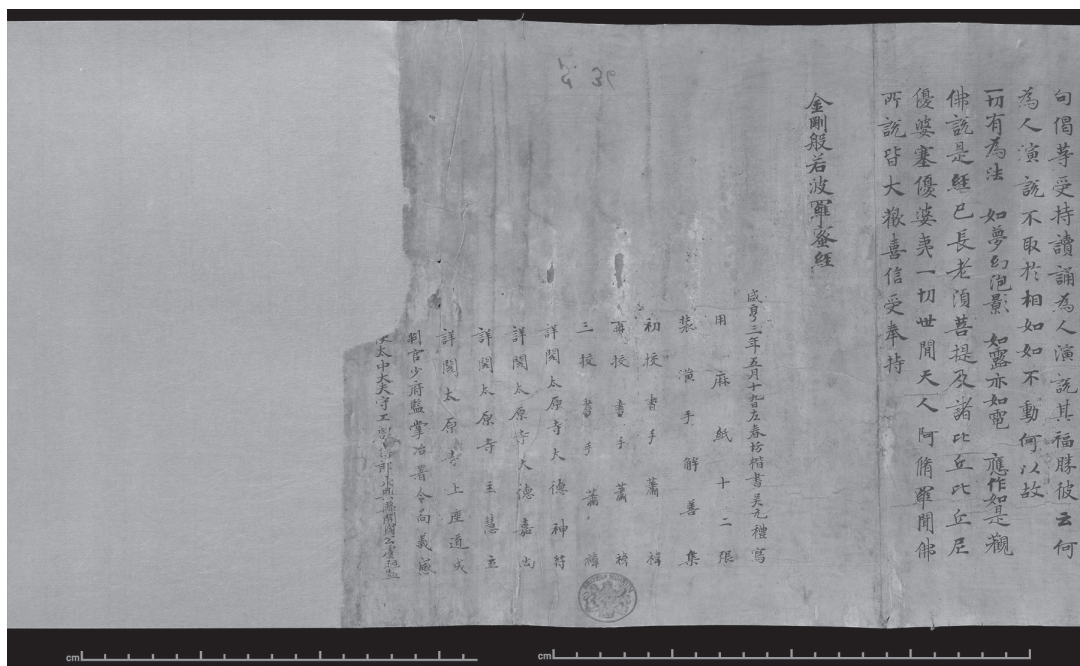 句偈等受持讀誦為人演說其福勝彼云何
為人演說不取於相如如不動何以故
一切有為法 如夢幻泡影 如露亦如電 應作如是觀
佛說是經已長老須菩提及諸比丘比丘尼
優婆塞優婆夷一切世間天人阿脩羅聞佛
所說皆大歡喜信受奉持
金剛般若波羅蜜經
咸亨三年五月十九日左春坊楷書吳元禮寫
用麻紙十二張
裝潢手解善集
初校書手蕭禕
再校書手蕭禕
三校書手蕭禕
詳閱太原寺大德神符
詳閱太原寺大德嘉尚
詳閱太原寺主慧立
詳閱太原寺上座道成
判官少府監掌冶署令向義感
使太中大夫守工部侍郎永興縣開國公虞昶監
cm
cm